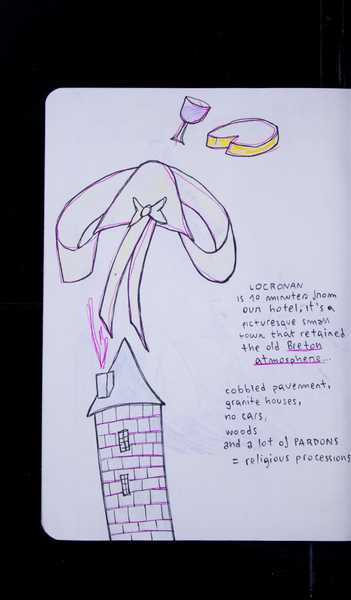 LOCRONAN
is 10 minutes from
our hotel, it's a
picturesque small
town that retained
the old Breton
atmosphere...
cobbled pavement,
granite houses,
no cars,
woods
and a lot of PARDONS
= religious processions